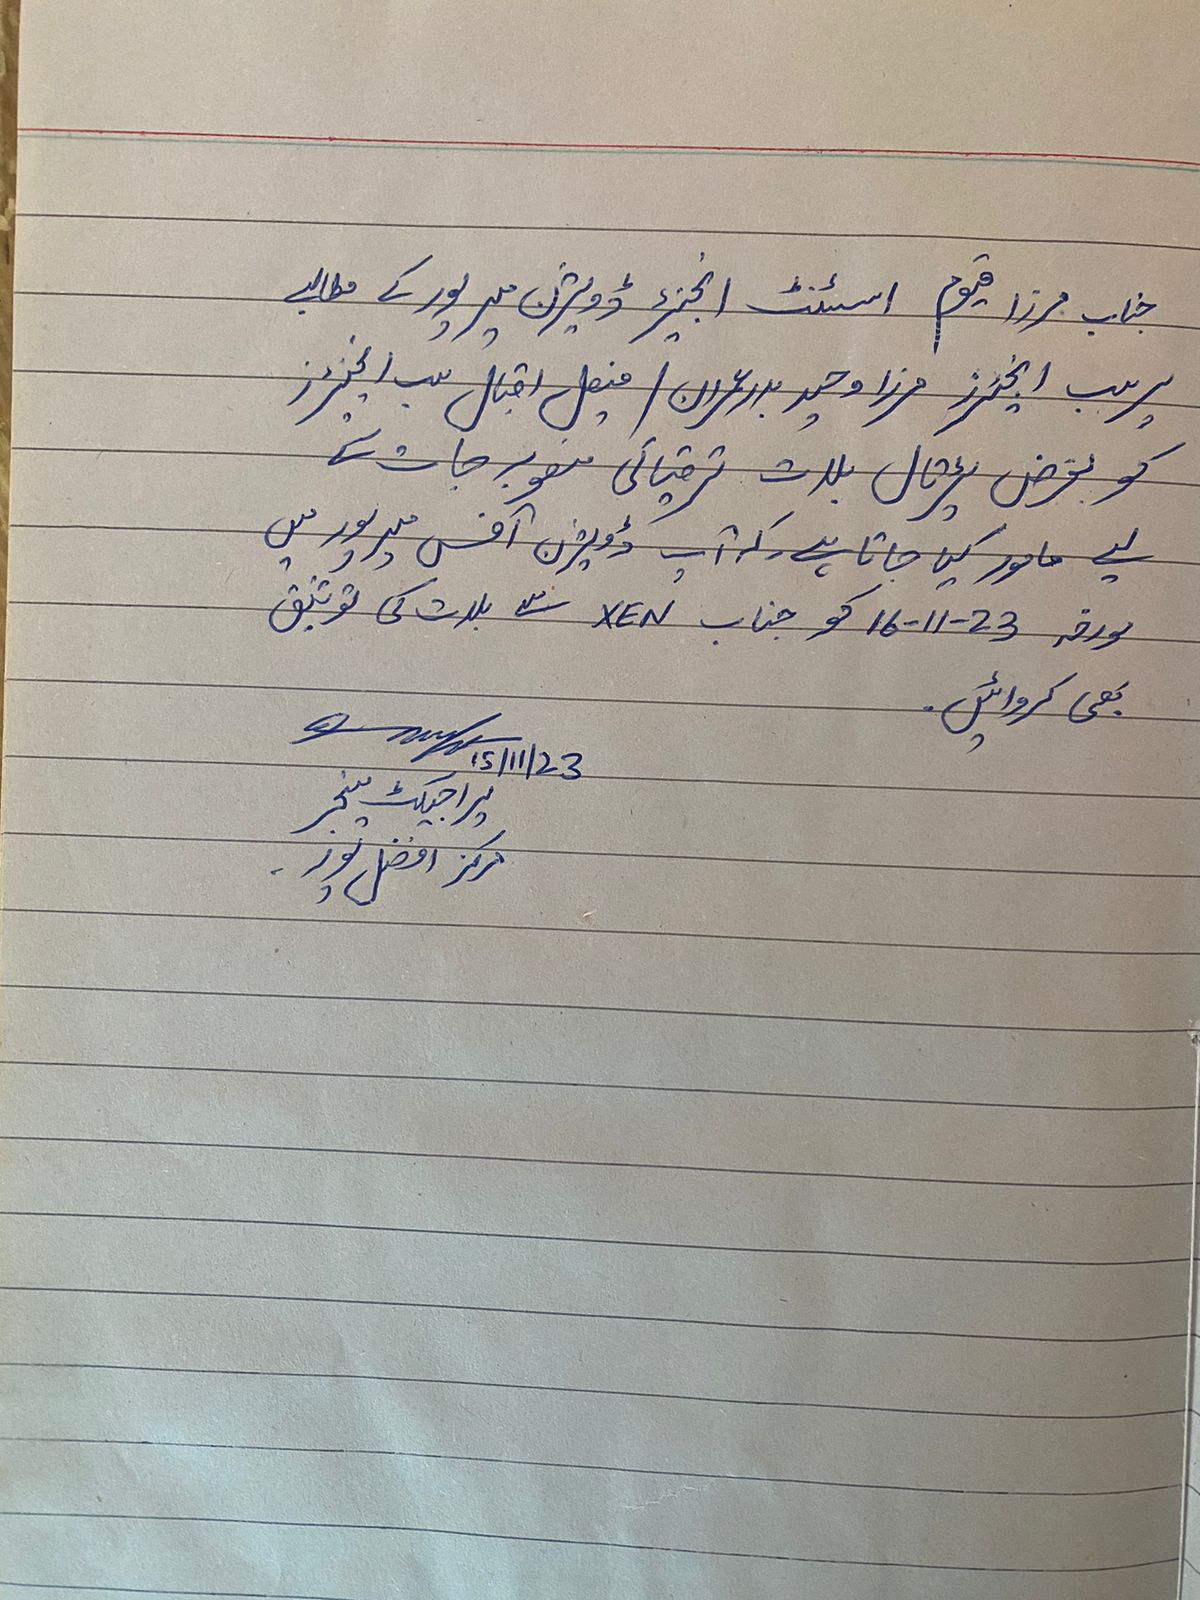 جناب مرزا قیوم اسسٹنٹ انجینئر ڈویژن میرپور کے مطالبے
پر سب انجینئرز مرزا وحید بدر عمران / فیصل اقبال سب انجینئرز
کو بغرض پڑتال بلات ترقیاتی منصوبہ جات کے
لیے مامور کیا جاتا ہے۔ کہ آپ ڈویژن آفس میرپور میں
مورخہ 16-11-23 کو جناب XEN سے بلات کی توثیق
بھی کروائیں۔
15/11/23
پراجیکٹ منیجر
مرکز افضل پور۔